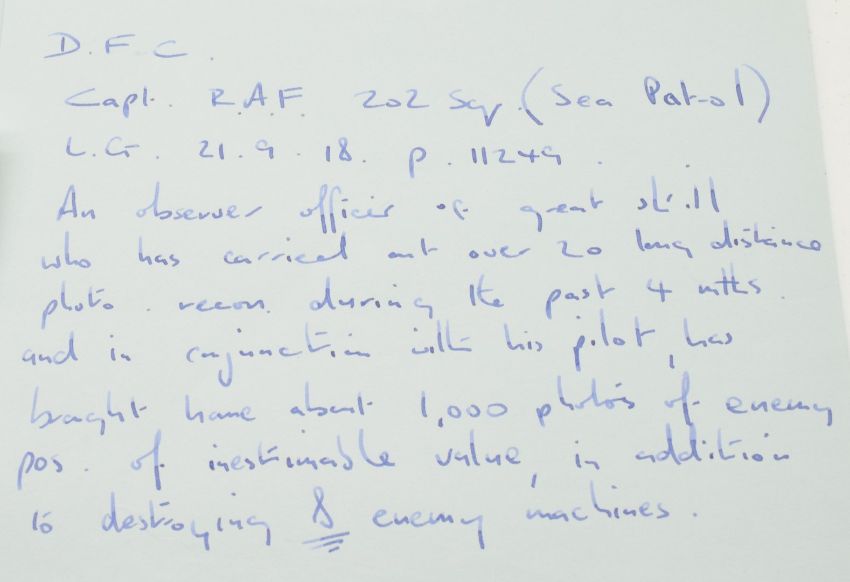 D.F.C.
Capt. R.A.F. 202 Sqr. (Sea Patrol)
L.G. 21.9.18. p.11249.
An observer officer of great skill
who has carried out over 20 long distance
photo. recon. during the past 4 mths.
and in conjunction with his pilot, has
brought home about 1,000 photos of enemy
pos. of inestimable value, in addition
to destroying 8 enemy machines.